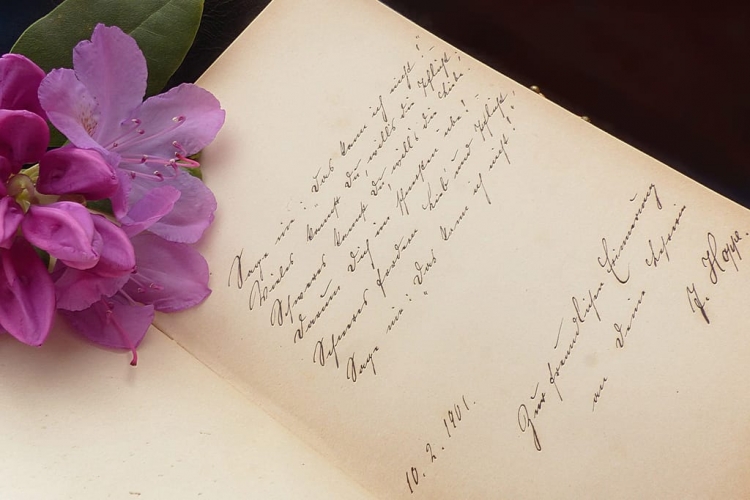 Sage nie: „Das kann ich nicht!"
Vieles kannst Du, will's die Pflicht;
Schweres kannst Du, will's die Liebe
Darum Dich im Schweren übe!
Schweres fordern Lieb' und Pflicht;
Sage nie: „Das kann ich nicht!"
10. 2. 1901.
Zur freundlichen Erinnerung
an Deine Lehrerin
J. Hoppe.